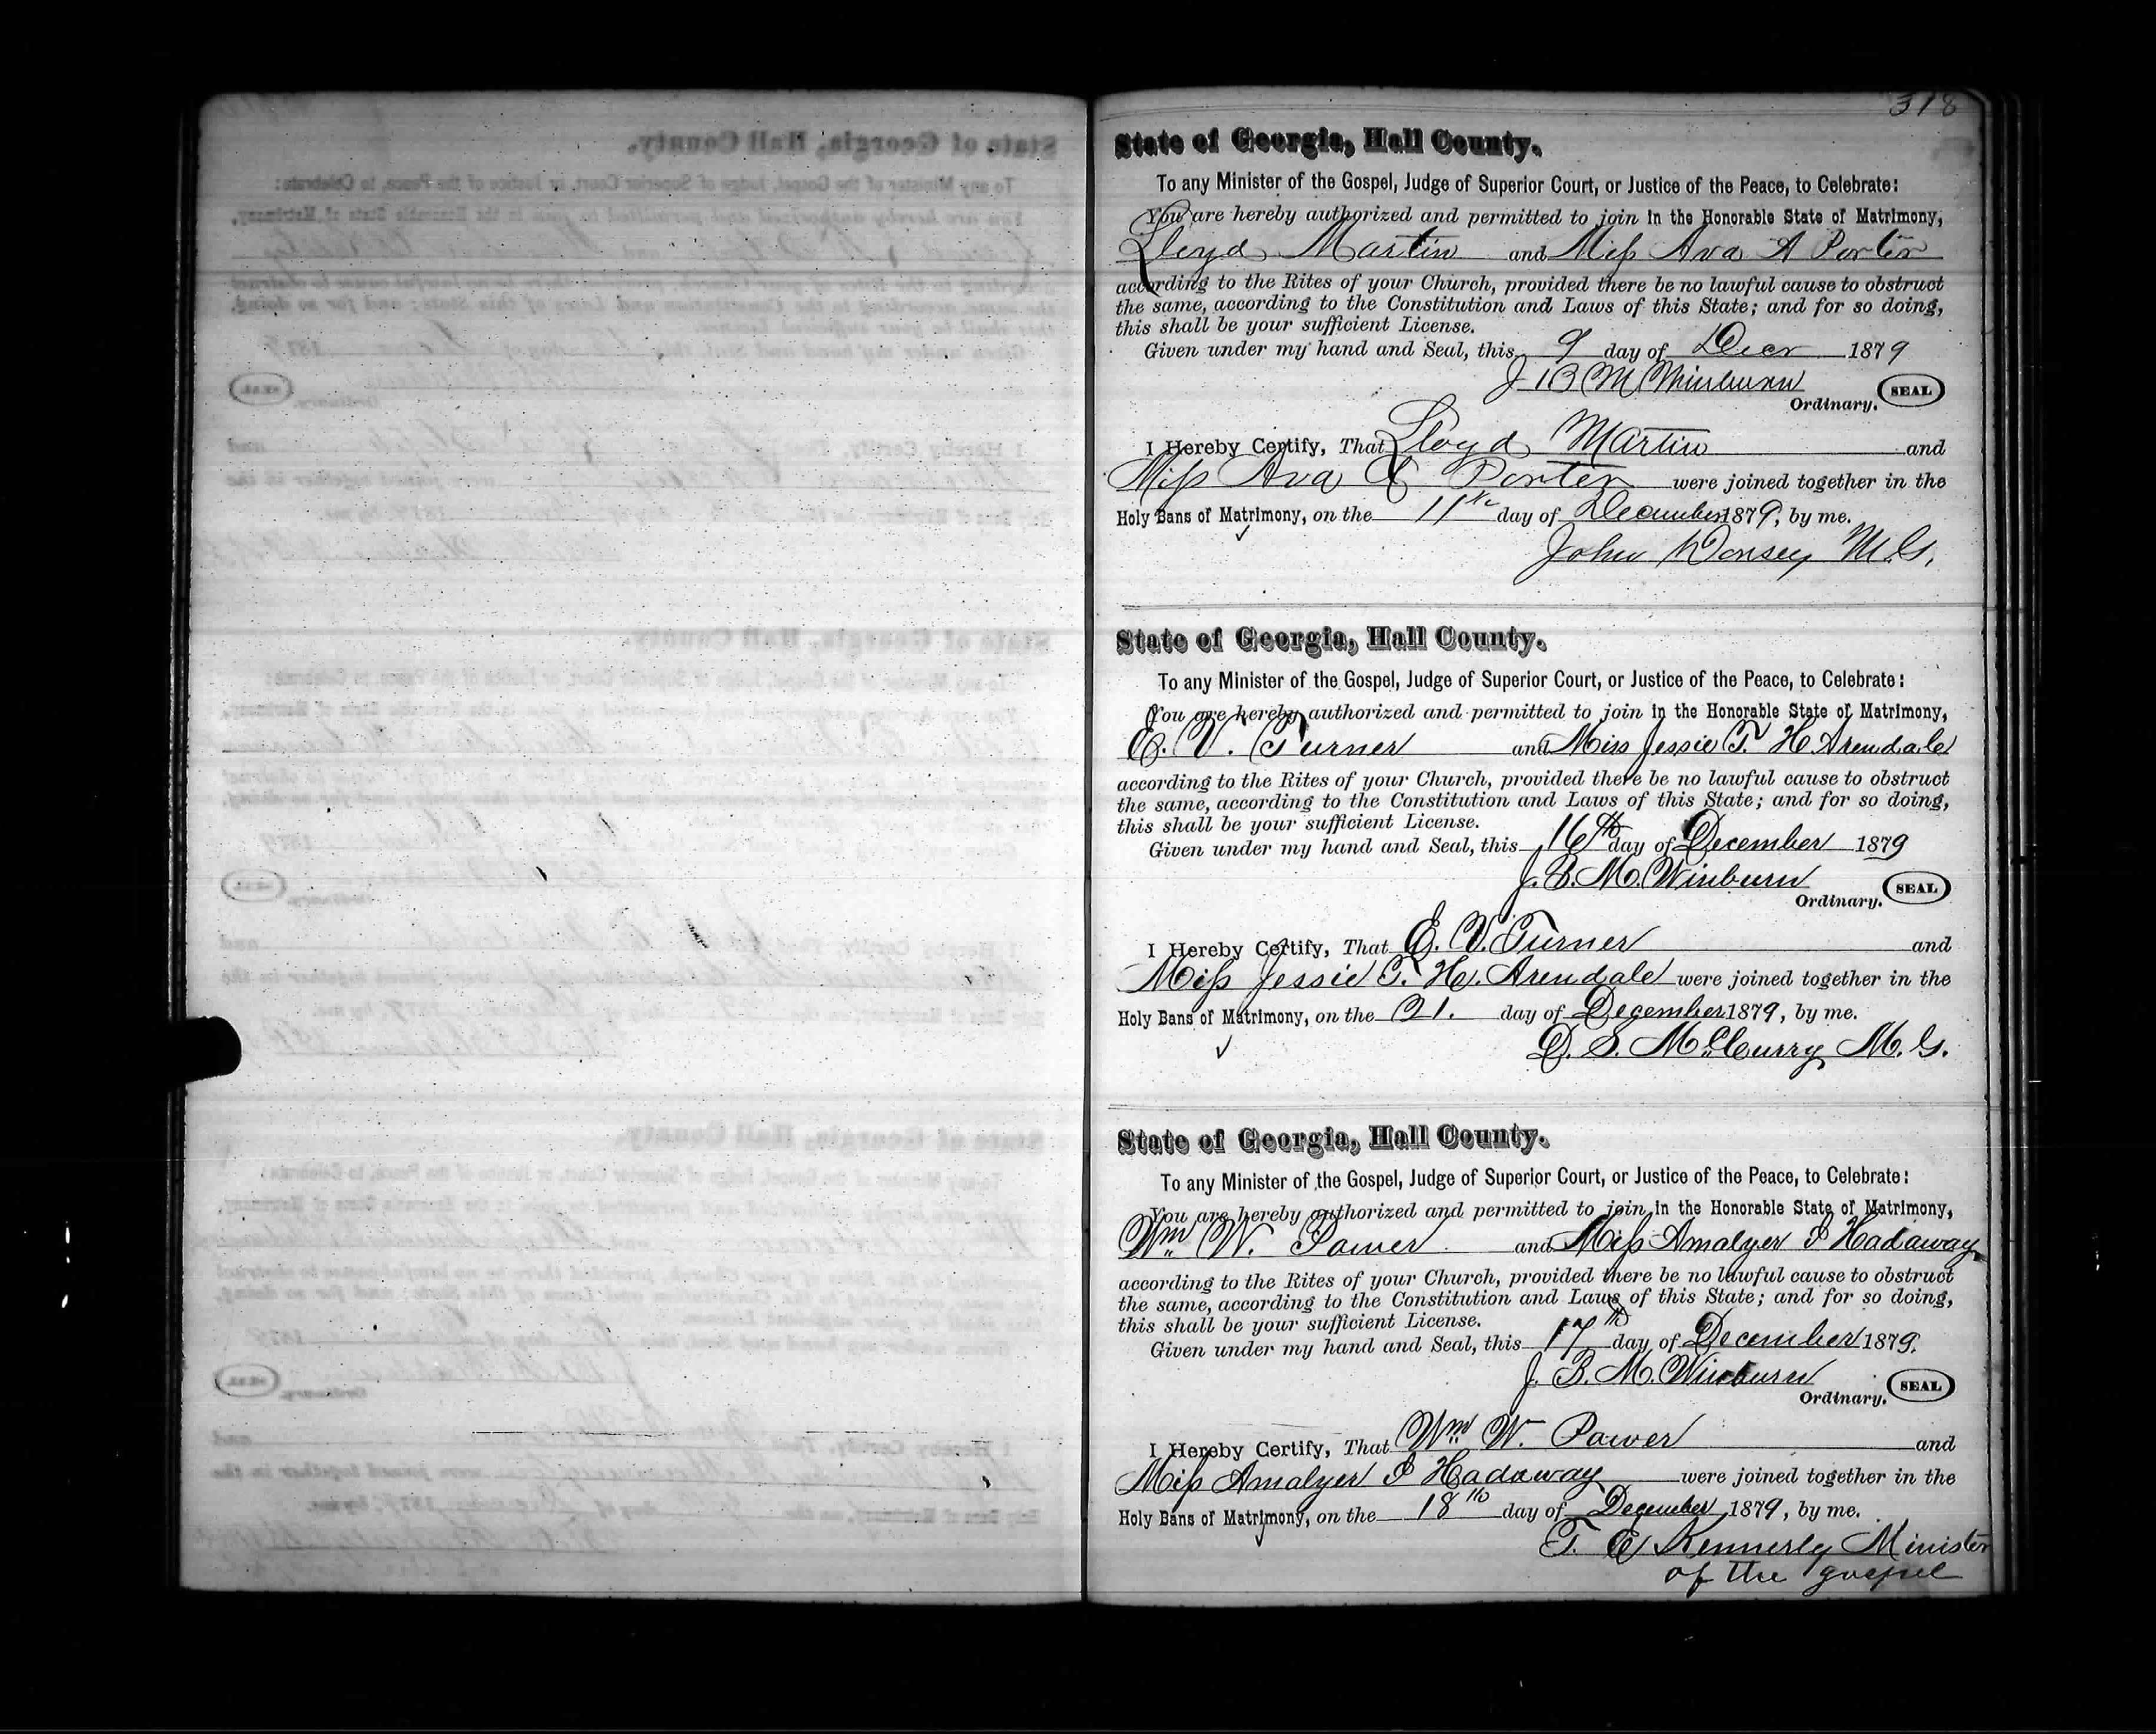 318
State of Georgia, Hall County.
To any Minister of the Gospel, Judge of Superior Court, or Justice of the Peace, to Celebrate:
You are hereby authorized and permitted to join in the Honorable State of Matrimony,
Lloyd Martin and Miss Ava A Porter
according to the Rites of your Church, provided there be no lawful cause to obstruct
the same, according to the Constitution and Laws of this State; and for so doing,
this shall be your sufficient License.
Given under my hand and Seal, this 9 day of Decr 1879
J B M Winburn
Ordinary. SEAL
I Hereby Certify, That Lloyd Martin and
Miss Ava Porter were joined together in the
Holy Bans of Matrimony, on the 11th day of December 1879, by me.
John Dorsey M.G.
State of Georgia, Hall County.
To any Minister of the Gospel, Judge of Superior Court, or Justice of the Peace, to Celebrate:
You are hereby authorized and permitted to join in the Honorable State of Matrimony,
E. V. Turner and Miss Jessie T. H. Arendale
according to the Rites of your Church, provided there be no lawful cause to obstruct
the same, according to the Constitution and Laws of this State; and for so doing,
this shall be your sufficient License.
Given under my hand and Seal, this 16th day of December 1879
J. B. M. Winburn
Ordinary. SEAL
I Hereby Certify, That E. V. Turner and
Miss Jessie T. H. Arendale were joined together in the
Holy Bans of Matrimony, on the 21. day of December 1879, by me.
D. S. McCurry M. G.
State of Georgia, Hall County.
To any Minister of the Gospel, Judge of Superior Court, or Justice of the Peace, to Celebrate:
You are hereby authorized and permitted to join in the Honorable State of Matrimony,
Wm W. Power and Miss Amalyer I Hadaway
according to the Rites of your Church, provided there be no lawful cause to obstruct
the same, according to the Constitution and Laws of this State; and for so doing,
this shall be your sufficient License.
Given under my hand and Seal, this 17th day of December 1879.
J. B. M. Winburn
Ordinary. SEAL
I Hereby Certify, That Wm W. Power and
Miss Amalyer I Hadaway were joined together in the
Holy Bans of Matrimony, on the 18th day of December 1879, by me.
T. E Kennerly Minister
of the gospel